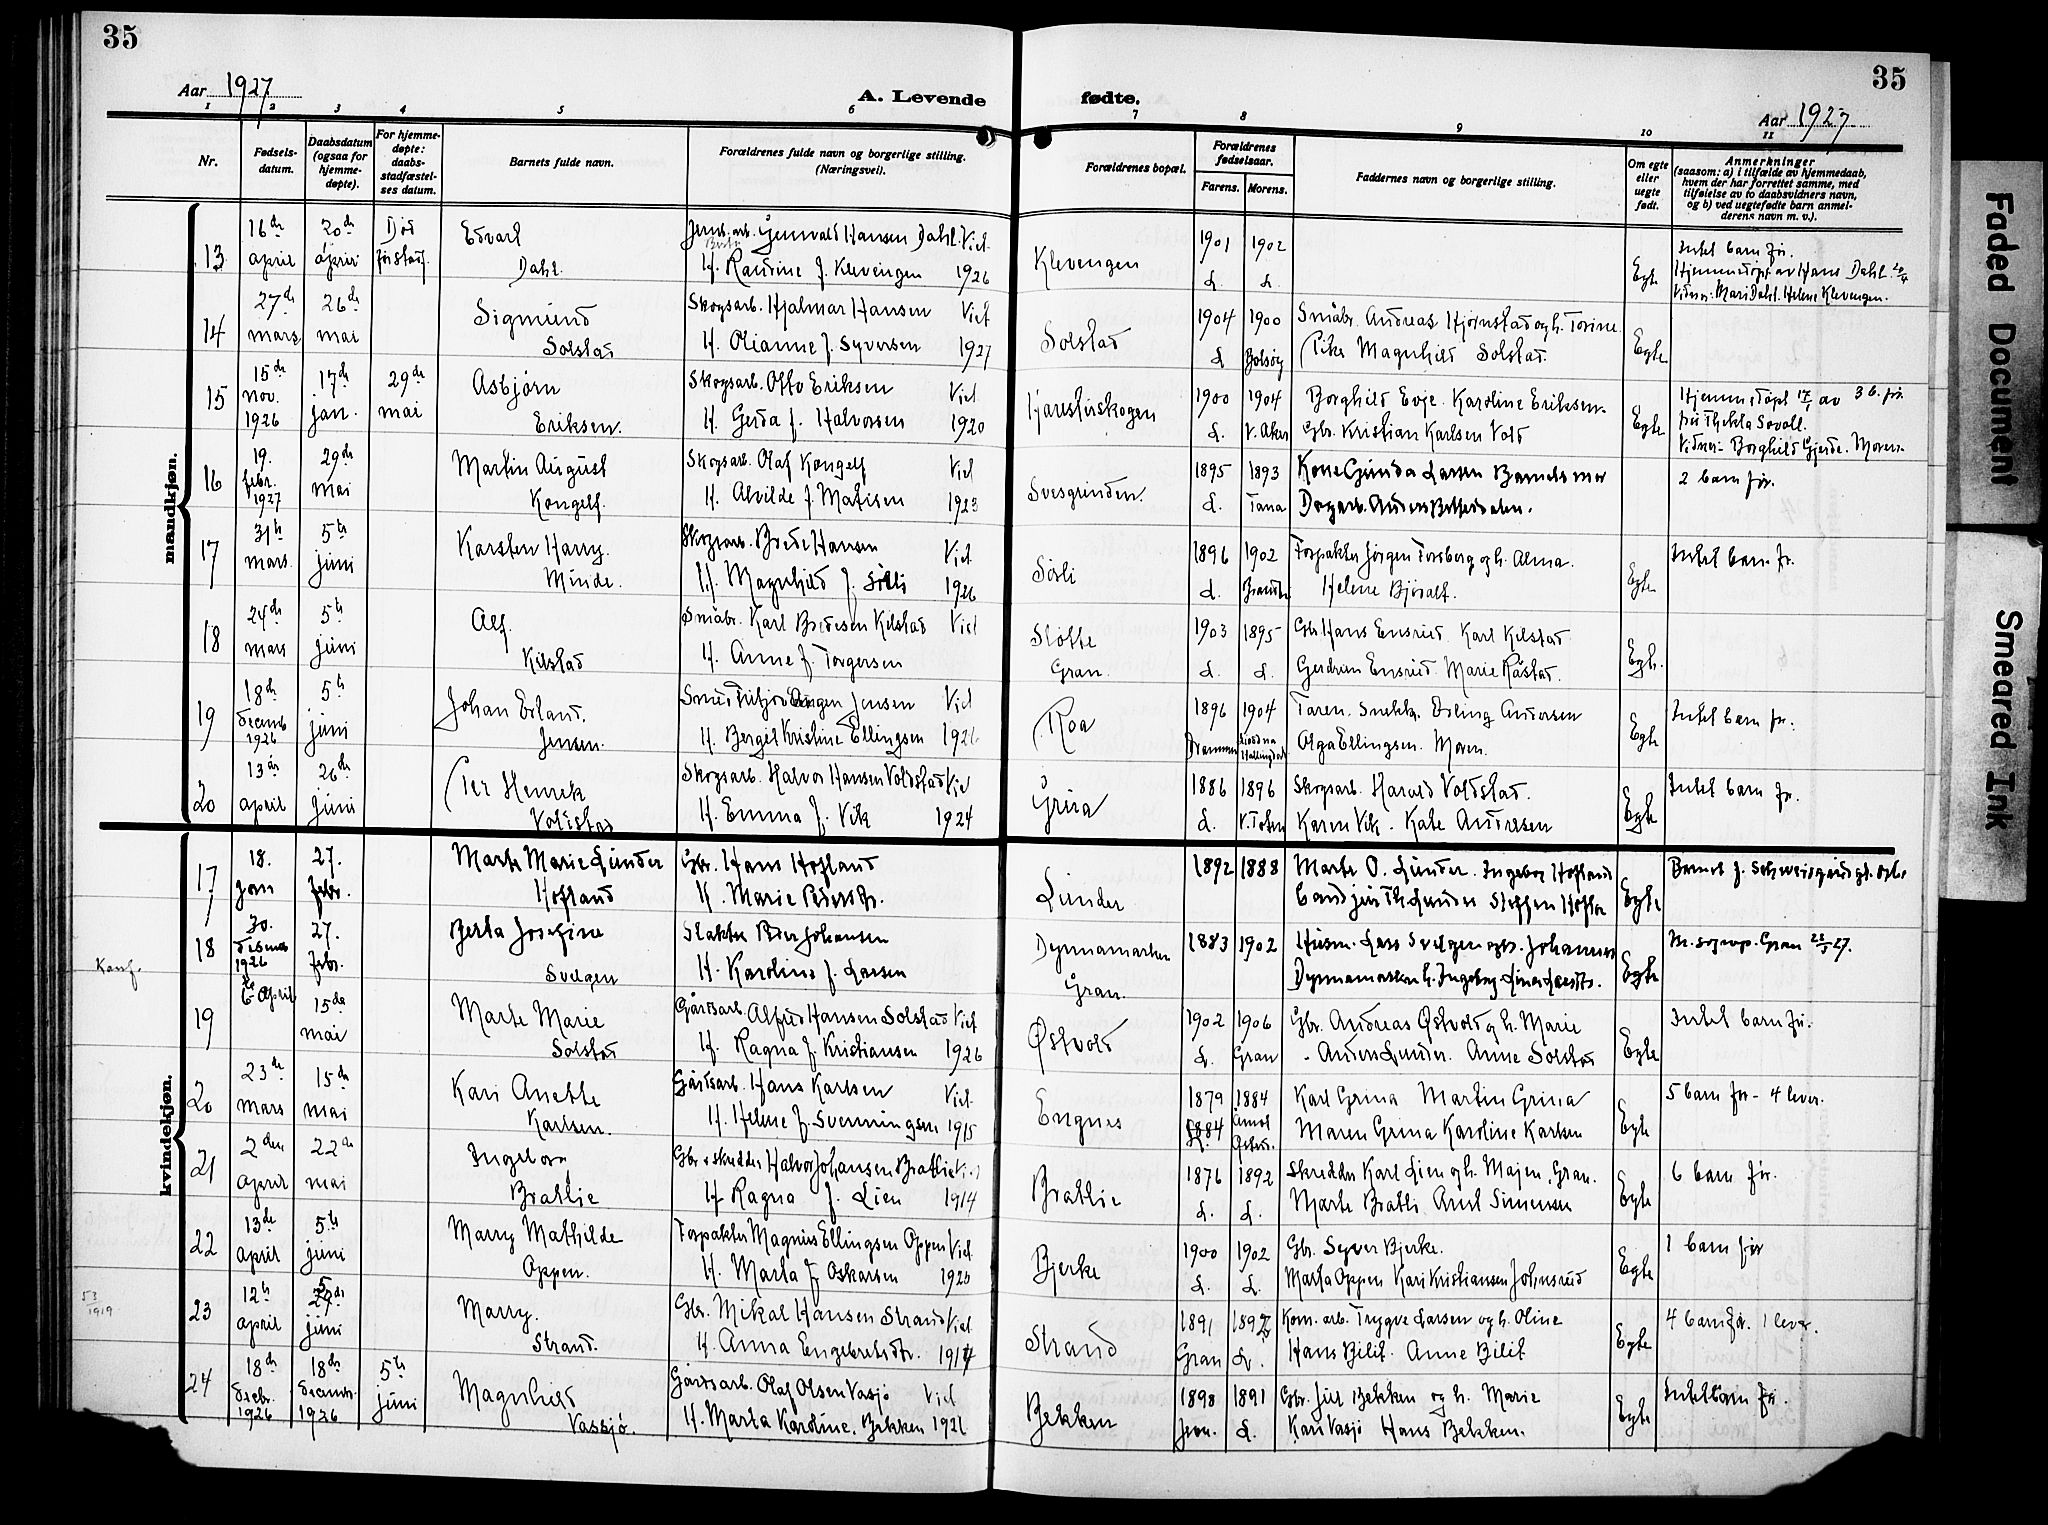 35
35
Aar 1927
A. Levende
fødte.
Aar 1927
1 2 3 4 5 6 7 8 9 10 11
Nr.
Fødselsdatum.
Daabsdatum (ogsaa for hjemmedøpte).
For hjemmedøpte: daabsstadfæstelses datum.
Barnets fulde navn.
Forældrenes fulde navn og borgerlige stilling. (Næringsvei).
Forældrenes bopæl.
Forældrenes fødselsaar.
Farens. Morens.
Faddernes navn og borgerlige stilling.
Om egte eller uegte født.
Anmerkninger
(saasom: a) i tilfælde av hjemmedaab, hvem der har forrettet samme, med tilføielse av to daabsvidners navn, og b) ved uegtefødte barn anmelderens navn m. v.).
mandkjøn.
13 16de april 20de april Død før stadf. Edvart Dahl. Hansen Dahl Viet
H. Raudine f. Klevengen 1926 Klevengen 1901 L. 1902 L. Egte Intet barn før.
Hjemmedøpt av Hans Dahl 20/4
Vidner: Mari Dahl. Helene Klevengen.
14 27de mars 26de mai Sigmund Solstad Skogsarb. Hjalmar Hansen Viet
H. Olianne f. Syversen 1927 Solstad 1904 L 1900 Småbr. Andreas Hjørnstad og h. Torine
Pike Magnhild Solstad. Egte
15 15de nov. 1926 17de jan. 29de mai Asbjørn Eriksen. Skogsarb. Otto Eriksen Viet
H. Gerda f. Halvorsen 1920 1900 L. 1904 V. Aker Borghild Evje. Karoline Eriksen.
Gbr. Kristian Karlsen Vold Egte Hjemmedøpt 17/1 av 3 b. før.
fru Thekla Sovoll.
Vidner: Borghild Gjerde. Moren.
16 19. febr. 1927 29de mai Martin August Kongelf. Skogsarb. Olaf Kongelf Viet
H. Alvilde f. Matisen 1923 Svesgrinden. 1895 L. 1893 Tana Kone Gunda Larsen Barnets mor
2 barn før.
17 31te mars. 5te juni Karsten Harry. Minde. Skogsarb. Brede Hansen Viet
H. Magnhild f. Sørli 1926 Sørli 1896 L. 1902 Brandbu Forpakter Jørgen Forsberg og h. Alma.
Helene Björalt Egte Intet barn før.
18 24de mars 5te juni Alf. Kilstad Småbr. Karl Bredesen Kilstad Viet
H. Anne f. Torgersen Sløtte Gran. 1903 L. 1895 L. Gbr. Hans Ensrud. Karl Kilstad
Gudrun Ensrud. Marie Råstad. Egte.
19 18de decemb 1926 5te juni Johan Erland. Jensen. Jensen Viet
H. Bergit Kristine Ellingsen 1926 Roa 1896 Drammen 1904 Taren. Snekk. Erling Andersen
Olga Ellingsen. Moren. Egte Intet barn før.
20 13de april 26de juni Per Henrik Voldstad Skogsarb. Halvor Hansen Voldstad Viet
H. Emma f. Vik 1924 Grina 1886 L. 1896 V. Toten Skogsarb. Harald Voldstad.
Karen Vik. Kate Andresen Egte Intet barn før.
kvindekjøn.
17 18. jan 27. febr. Marte Marie Lunder Hofland Gbr. Hans Hofland
H. Marie Pedersdtr. Lunder 1892 1888 Marte O. Lunder. Ingebor Hofland
Cand jur Th. Lunder Steffen Hoflan Egte
Konf.
18 30. desemb 1926 27. febr. Berta Josefine Svelgen Slakter Peder Johansen
H. Karoline f. Larsen Dynnamarken Gran. 1883 1902 Husm. Lars Svelgen
Egte
19 6te April 15de mai Marte Marie Solstad Gårdsarb. Alfred Hansen Solstad Viet
H. Ragna f. Kristiansen 1926 Østvold 1902 L. 1906 Gran Gbr. Andreas Østvold og h. Marie
- Anders Lunder. Anne Solstad Egte Intet barn før.
20 23de mars 15de mai Kari Anette Karlsen. Gårdsarb. Hans Karlsen Viet
H. Helene f. Svenningsen 1915 Engnes 1879 1884 Karl Grina Martin Grina
Maren Grina Karoline Karlsen Egte 5 barn før - 4 lever.
21 2den april 22de mai Ingeborg Brattie Gbr & skredder Halvor Johansen Brattie Viet
H. Ragna f. Lien 1914 Brattie 1876 L. 1892 L. Skredder Karl Lien og h. Majen, Gran.
Marte Bratli Anet Simensen Egte 6 barn før.
22 13de april 5te juni Marry Mathilde Oppen. Forpakter Magnus Ellingsen Oppen Viet
H. Marta f. Oskarsen 1923 Bjerke 1900 L. 1902 L. Gbr. Syver Bjerke.
Marta Oppen Kari Kristiansen Johnsrud Egte 1 barn før
53/1919
23 12te april juni Marry. Strand. Gbr. Mikal Hansen Strand Viet
H. Anna Engebretsdtr. 1914 Strand 1891 Gran 1892 L. Kom. arb. Trygve Larsen og h. Oline
Hans Bilit. Anne Bilit Egte 4 barn før. 1 lever.
24 18de decbr. 1926 18de decembr. 1926 5te juni Magnhild Vassjø. Gårdsarb. Olaf Olsen Vasjø Viet
H. Marta Karoline. Bekken 1926 Bekken 1898 1891 L. Gbr. Juel Bekken og h. Marie
Kari Vasjø Hans Bekken. Egte Intet barn før.
Faded Document
Smeared Ink